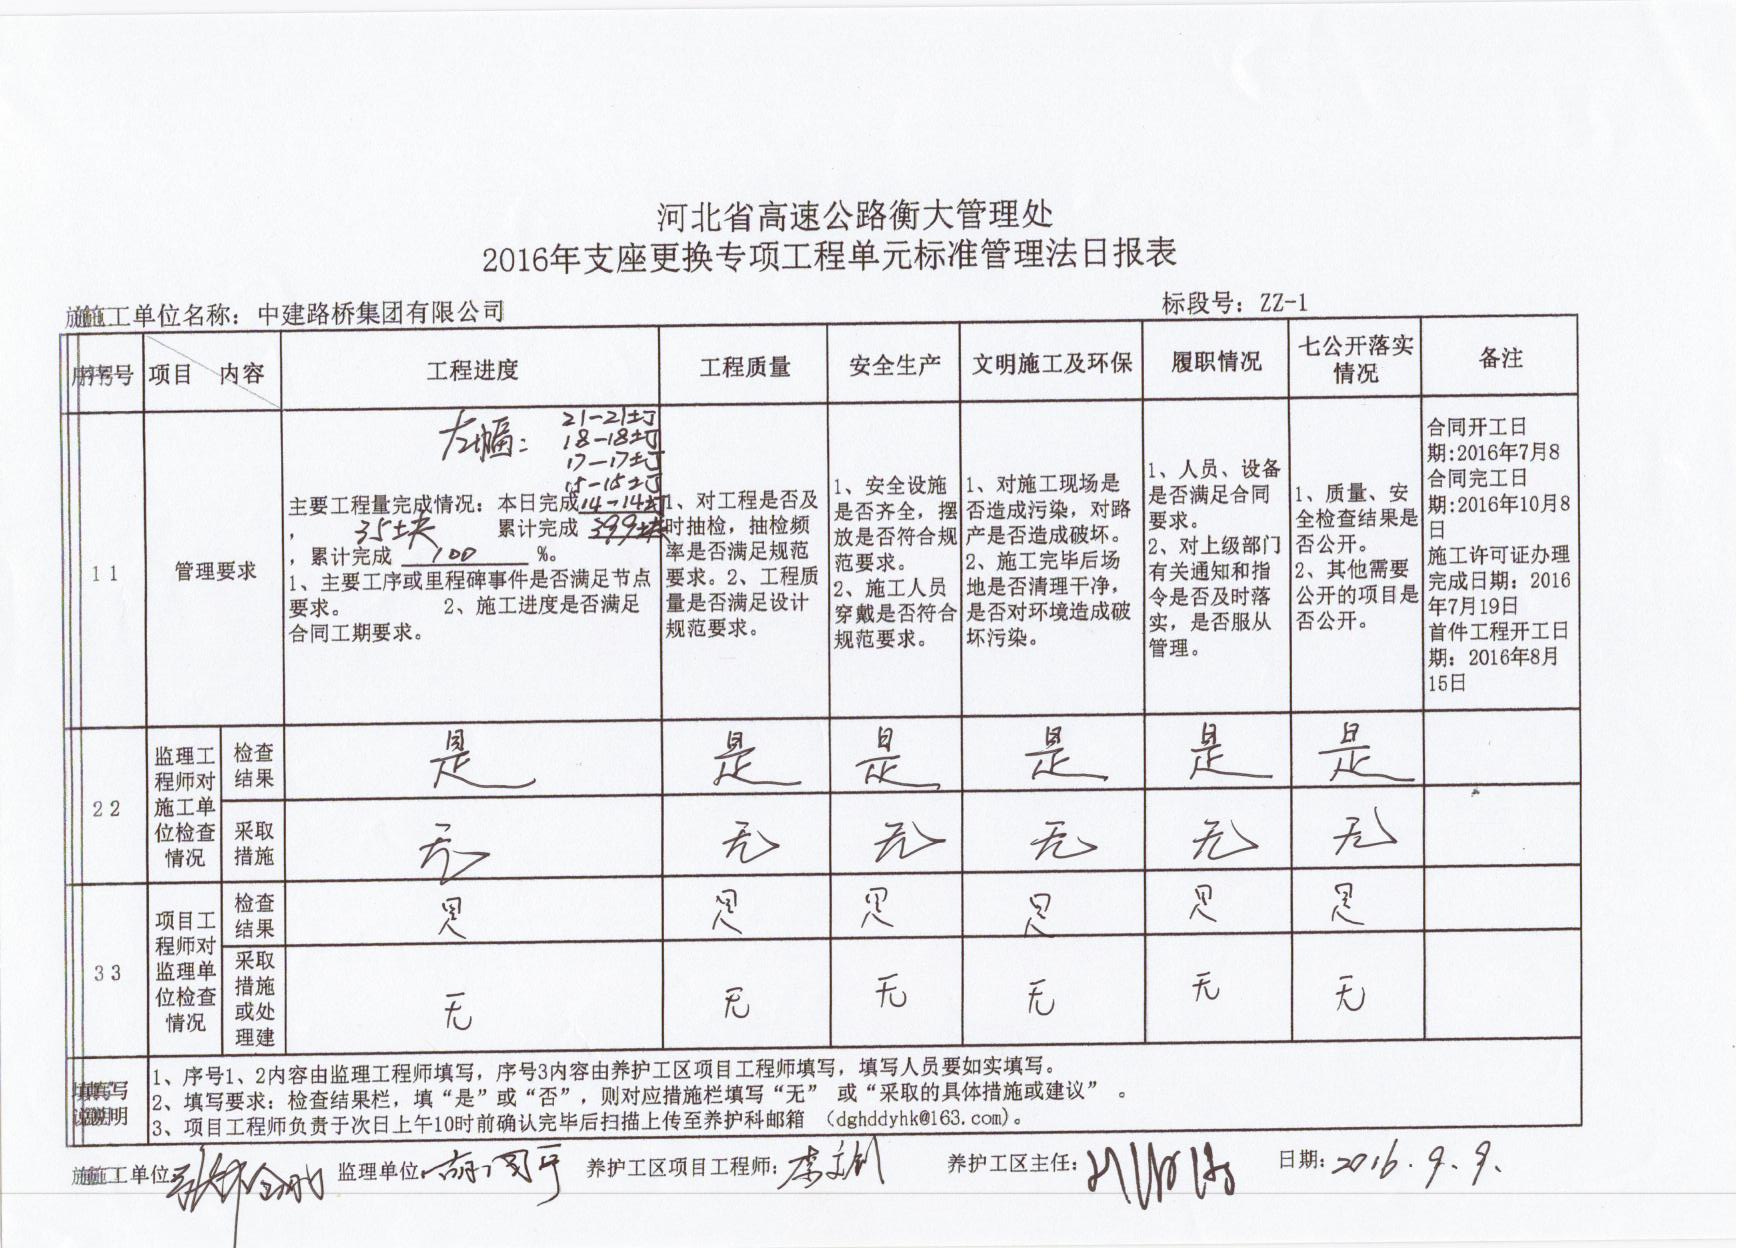 河北省高速公路衡大管理处
2016年支座更换专项工程单元标准管理法日报表
施工单位名称：中建路桥集团有限公司
标段号：ZZ-1
序号
项目 内容
工程进度
工程质量
安全生产
文明施工及环保
履职情况
七公开落实
情况
备注
1 1
管理要求
左幅：
21-21
18-18
17-17
15-15
主要工程量完成情况：本日完成14-14
， 35块 累计完成 399块
，累计完成 100 %。
1、主要工序或里程碑事件是否满足节点
要求。 2、施工进度是否满足
合同工期要求。
1、对工程是否及
时抽检，抽检频
率是否满足规范
要求。2、工程质
量是否满足设计
规范要求。
1、安全设施
是否齐全，摆
放是否符合规
范要求。
2、施工人员
穿戴是否符合
规范要求。
1、对施工现场是
否造成污染，对路
产是否造成破坏。
2、施工完毕后场
地是否清理干净，
是否对环境造成破
坏污染。
1、人员、设备
是否满足合同
要求。
2、对上级部门
有关通知和指
令是否及时落
实，是否服从
管理。
1、质量、安
全检查结果是
否公开。
2、其他需要
公开的项目是
否公开。
合同开工日
期:2016年7月8
合同完工日
期:2016年10月8
日
施工许可证办理
完成日期：2016
年7月19日
首件工程开工日
期：2016年8月
15日
2 2
监理工
程师对
施工单
位检查
情况
检查
结果
是 是 是 是 是 是
采取
措施
无 无 无 无 无 无
3 3
项目工
程师对
监理单
位检查
情况
检查
结果
是 是 是 是 是 是
采取
措施
或处
理建
无 无 无 无 无 无
填写
说明
1、序号1、2内容由监理工程师填写，序号3内容由养护工区项目工程师填写，填写人员要如实填写。
2、填写要求：检查结果栏，填“是”或“否”，则对应措施栏填写“无” 或“采取的具体措施或建议” 。
3、项目工程师负责于次日上午10时前确认完毕后扫描上传至养护科邮箱 （dghddyhk@163.com)。
施工单位 监理单位: 养护工区项目工程师: 养护工区主任: 日期:2016.9.9.